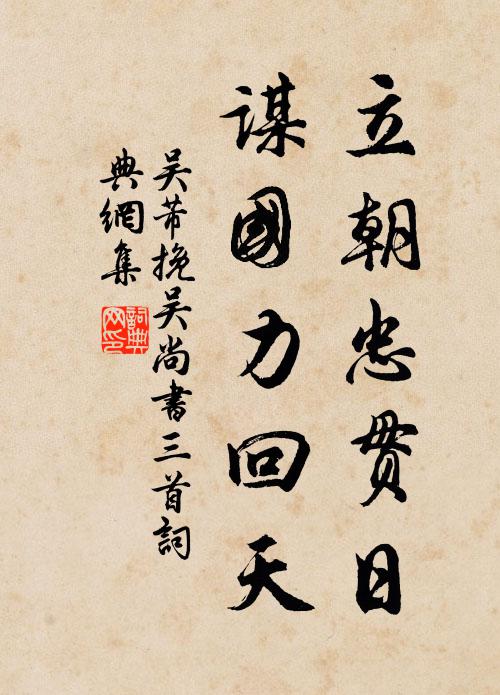 立朝忠贯日
謀國力回天
吴芾挽吴尚書三首詞
典網集
詞典
网印